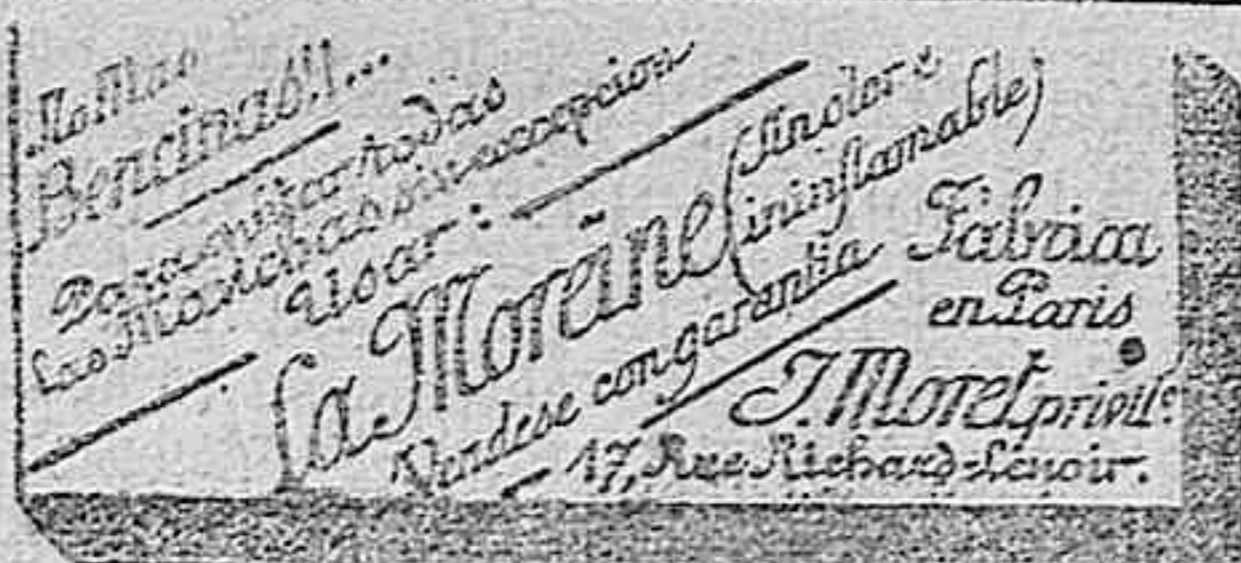 No Mas
Bencinas!!...
Para quitar todas
las Manchas sin excepcion
usar:
La Moreine (sin olor e
ininflamable)
Vendese con garantia
Fabrica
en Paris
J. Moret privil.
17, Rue Richard-Lenoir.